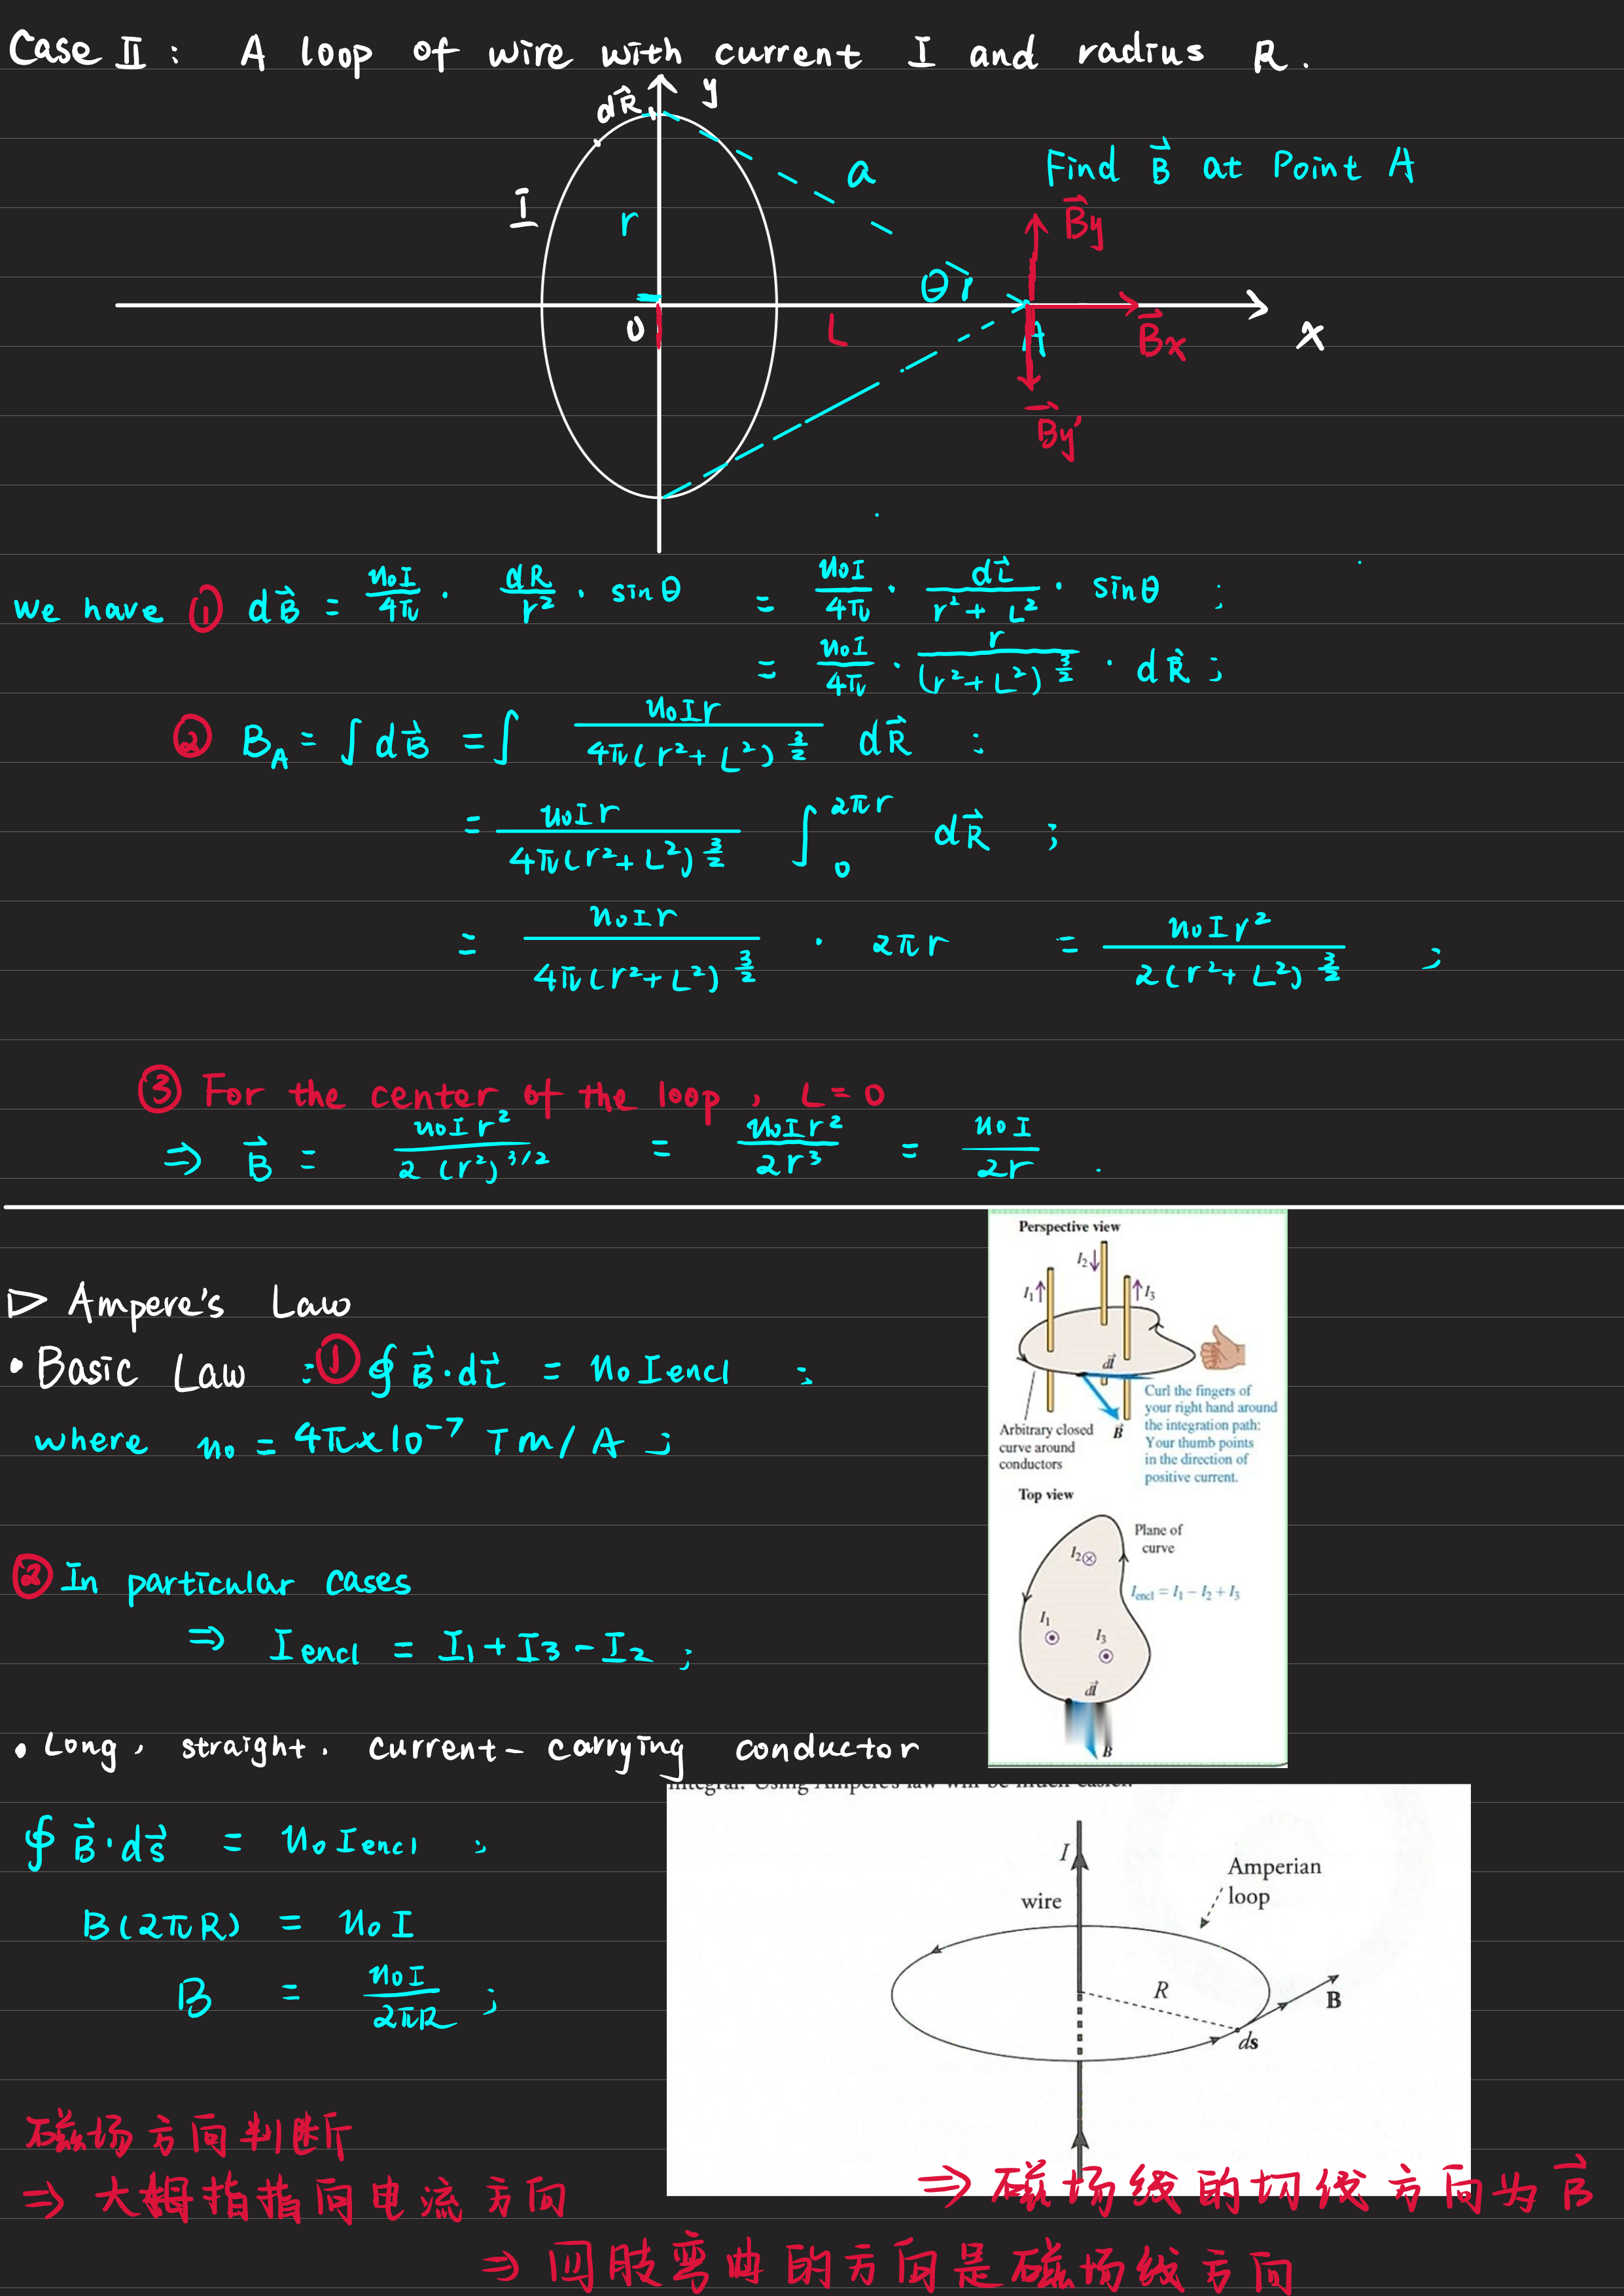 Case II : A loop of wire with current I and radius R.
dR⃗ y
a Find B⃗ at Point A
I r B⃗y
θ r⃗
O L A B⃗x x
B⃗y'
we have ① dB⃗ = u₀I/4π · dR/r² · sinθ = u₀I/4π · dL⃗/(r² + L²) · sinθ ;
= u₀I/4π · r/(r²+L²)^(3/2) · dR⃗ ;
② B_A = ∫ dB⃗ = ∫ u₀Ir/4π(r²+L²)^(3/2) dR⃗ ;
= u₀Ir/4π(r²+L²)^(3/2) ∫₀^(2πr) dR⃗ ;
= u₀Ir/4π(r²+L²)^(3/2) · 2πr = u₀Ir²/2(r²+L²)^(3/2) ;
③ For the center of the loop, L=0
⇒ B⃗ = u₀Ir²/2(r²)^(3/2) = u₀Ir²/2r³ = u₀I/2r .
▷ Ampere's Law
• Basic Law : ① ∮ B⃗·dL⃗ = u₀Iencl ;
where u₀ = 4π×10⁻⁷ Tm/A ;
② In particular cases
⇒ Iencl = I₁+I₃-I₂ ;
Perspective view
I₂
I₁ I₃
dl⃗
Curl the fingers of
your right hand around
the integration path:
Your thumb points
in the direction of
positive current.
Arbitrary closed
curve around
conductors
B⃗
Top view
Plane of
curve
I₂
Iencl = I₁ − I₂ + I₃
I₁
I₃
dl⃗
B
• Long, straight, current-carrying conductor
integral. Using Ampere's law will be much easier.
∮ B⃗·ds⃗ = u₀Iencl ;
B(2πR) = u₀I
B = u₀I/2πR ;
I
wire
Amperian
loop
R
B
ds
磁场方向判断
⇒ 大拇指指向电流方向
⇒ 磁场线的切线方向为 B⃗
⇒ 四肢弯曲的方向是磁场线方向